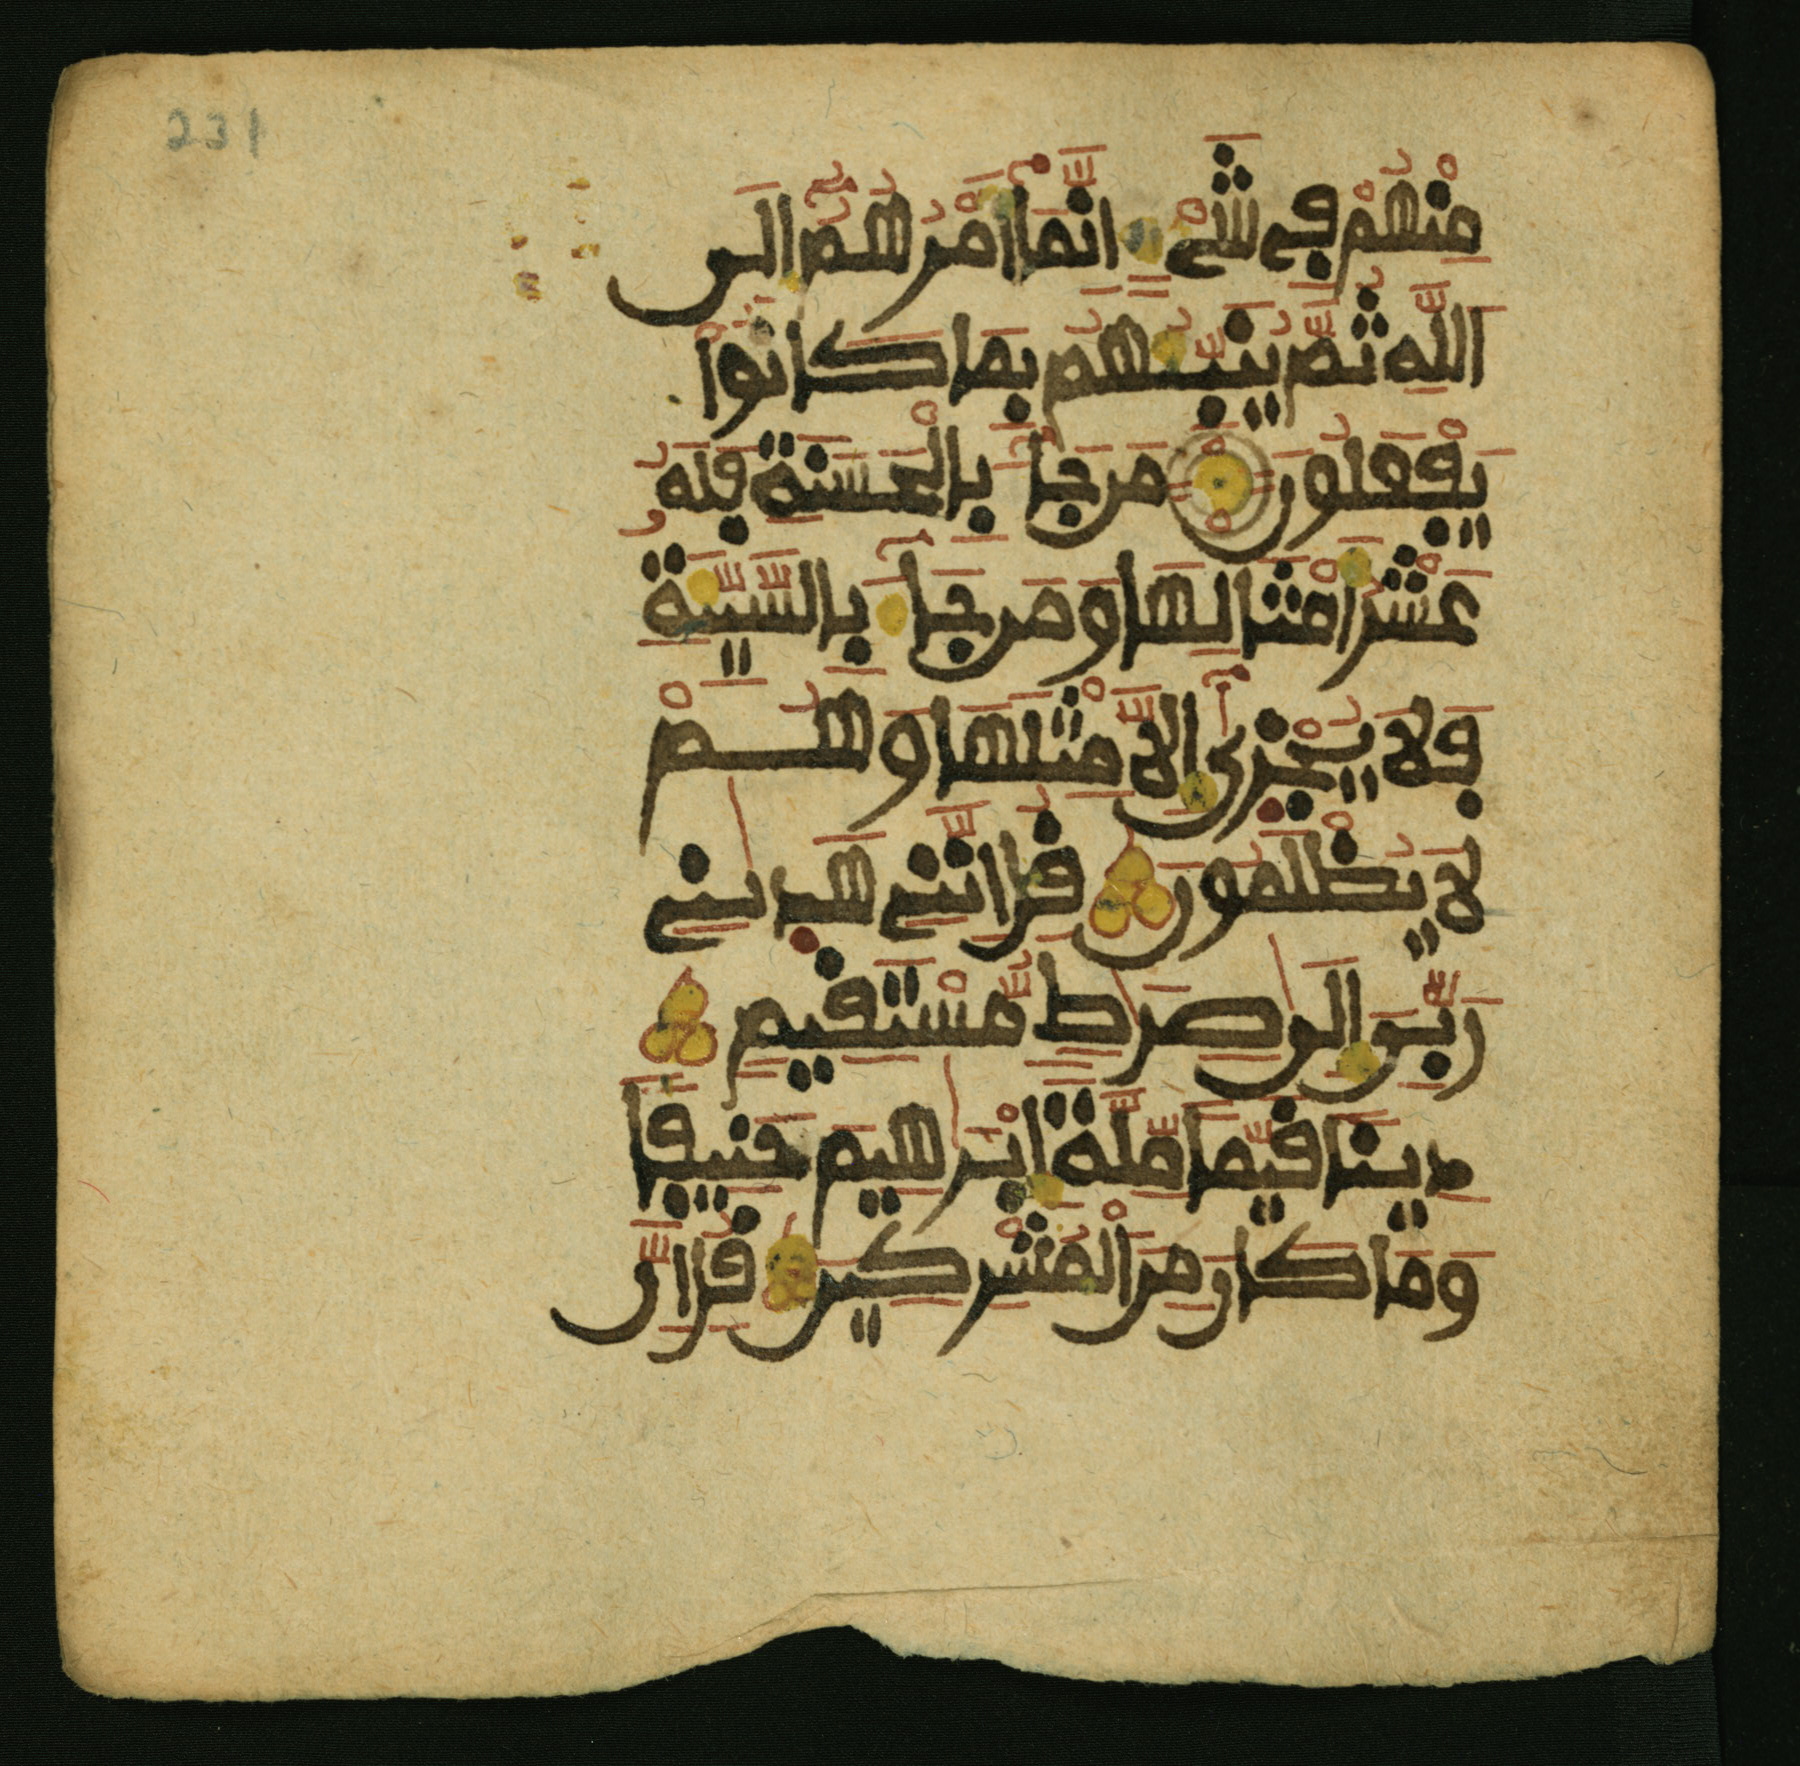 231
مِنْهُمْ فِي شَيْءٍ إِنَّمَا أَمْرُهُمُ إِلَى
اللَّهِ ثُمَّ يُنَبِّئُهُم بِمَا كَانُوا
يَفْعَلُونَ مَن جَاءَ بِالْحَسَنَةِ فَلَهُ
عَشْرُ أَمْثَالِهَا وَمَن جَاءَ بِالسَّيِّئَةِ
فَلَا يُجْزَى إِلَّا مِثْلَهَا وَهُمْ
لَا يُظْلَمُونَ قُلْ إِنَّنِي هَدَينِي
رَبِّيَ إِلَى صِرَاطٍ مُّسْتَقِيمٍ
دِينًا قَيِّمًا مِّلَّةَ إِبْرَاهِيمَ حَنِيفًا
وَمَا كَانَ مِنَ الْمُشْرِكِينَ قُلْ إِنَّ